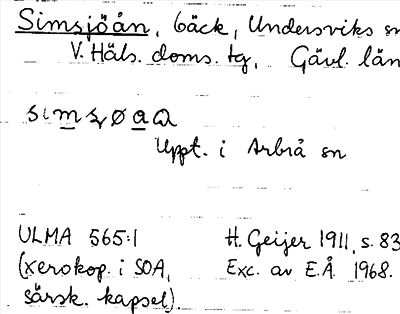 Simsjöån, bäck, Undersviks sn
V. Häls. doms. tg, Gävl. län
Uppt. i Arbrå sn
ULMA 565:1 H. Geijer 1911, s. 83
(xerokop. i SOA, Exc. av E.Å. 1968.
särsk. kapsel).